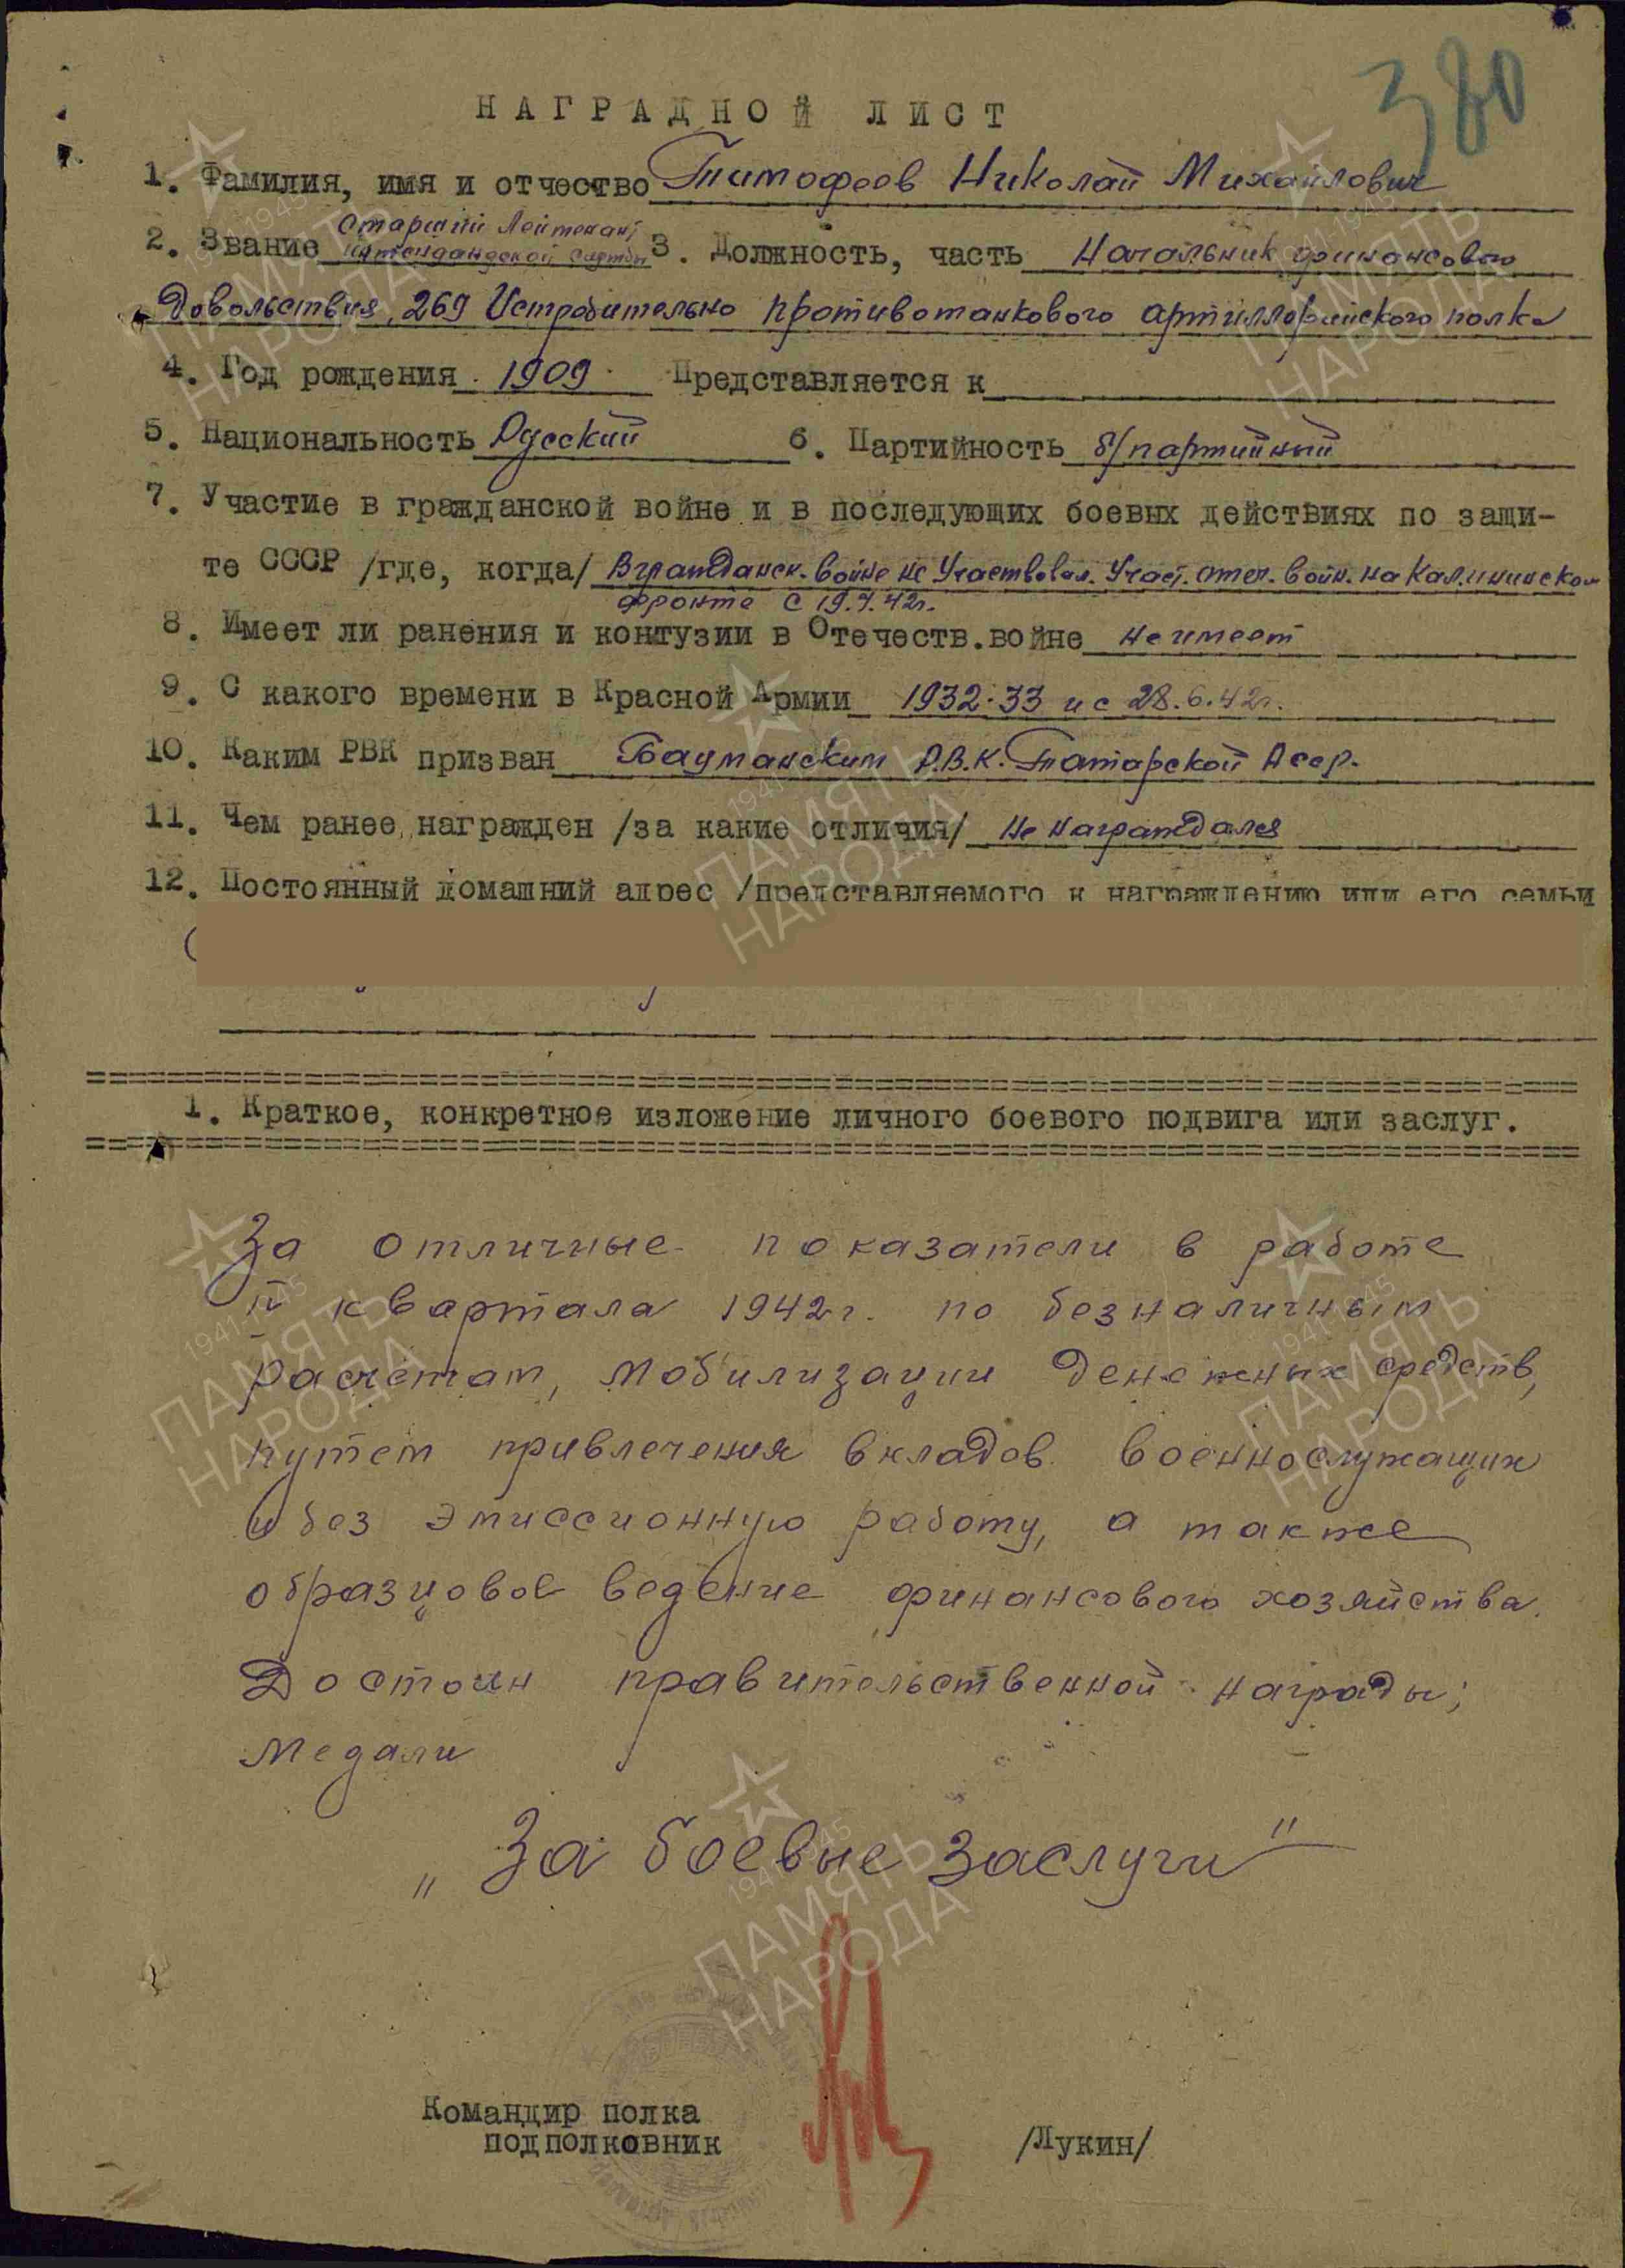 380
НАГРАДНОЙ ЛИСТ
1. Фамилия, имя и отчество Тимофеев Николай Михайлович
2. Звание Старший Лейтенант интендандской службы 3. Должность, часть Начальник финансового
довольствия, 269 Истребительно противотанкового артиллерийского полка
4. Год рождения 1909 Представляется к
5. Национальность Русский 6. Партийность б/партийный
7. Участие в гражданской войне и в последующих боевых действиях по защи-
те СССР /где, когда/ В граждансн. войне не Участвовал. Участ. отеч. войн. на Калининском
фронте с 19.7.42г.
8. Имеет ли ранения и контузии в Отечеств.войне не имеет
9. С какого времени в Красной Армии 1932-33 и с 28.6.42г.
10. Каким РВК призван Бауманским Р.В.К. Татарской Асср.
11. Чем ранее награжден /за какие отличия/ Не награждался
12. Постоянный домашний адрес /представляемого к награждению или его семьи
1. Краткое, конкретное изложение личного боевого подвига или заслуг.
За отличные показатели в работе
квартала 1942г. по безналичным
расчетам, мобилизации денежных средств,
путем привлечения вкладов военнослужащих
и без эмиссионную работу, а также
образцовое ведение финансового хозяйства.
Достоин правительственной награды;
Медали
„За боевые заслуги"
Командир полка
подполковник /Лукин/
ПАМЯТЬ НАРОДА
1941-1945